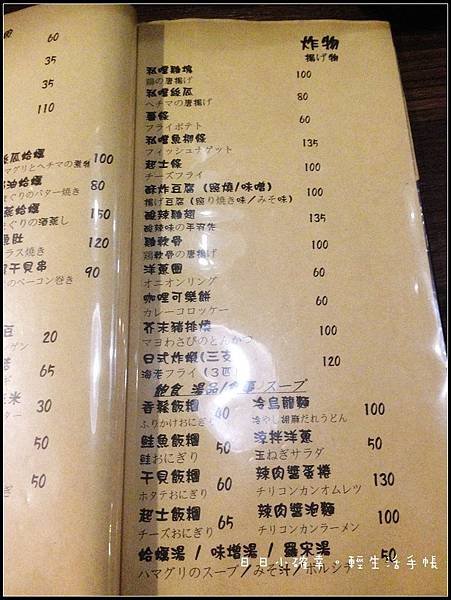 60
35
35
110
絲瓜蛤蠣 100
マグリとヘチマの煮物
油蛤蠣 80
ぐりのバター焼き
蒸蛤蠣 150
ぐりの酒蒸し
魚肚 120
ラス焼き
干貝串 90
のベーコン巻き
豆 20
ゲン
65
ター
米 30
50
50
炸物
揚げ物
秘醬雞塊 100
鶏の唐揚げ
秘醬絲瓜 80
ヘチマの唐揚げ
薯條 60
フライポテト
秘醬魚柳條 135
フィッシュナゲット
起士條 100
チーズフライ
酥炸豆腐 (照燒/味噌) 100
揚げ豆腐 (照り焼き味/みそ味)
酸辣雞翅 135
酸辣味の手羽先
雞軟骨 100
鶏軟骨の唐揚げ
洋蔥圈 60
オニオンリング
咖哩可樂餅 60
カレーコロッケー
芥末豬排燒 100
マヨわさびのとんかつ
日式炸蝦(三支) 120
海老フライ (3匹)
飽食 湯品/食事/スープ
香鬆飯糰 40
ふりかけおにぎり
鮭魚飯糰 50
鮭おにぎり
干貝飯糰 60
ホタテおにぎり
起士飯糰 65
チーズおにぎり
冷烏龍麵 100
冷やし胡麻だれうどん
涼拌洋蔥 50
玉ねぎサラダ
辣肉醬蛋捲 130
チリコンカンオムレツ
辣肉醬泡麵 100
チリコンカンラーメン
蛤蠣湯 / 味增湯 / 羅宋湯 50
ハマグリのスープ/みそ汁/ボルシチ
日日小確幸。輕生活手帳